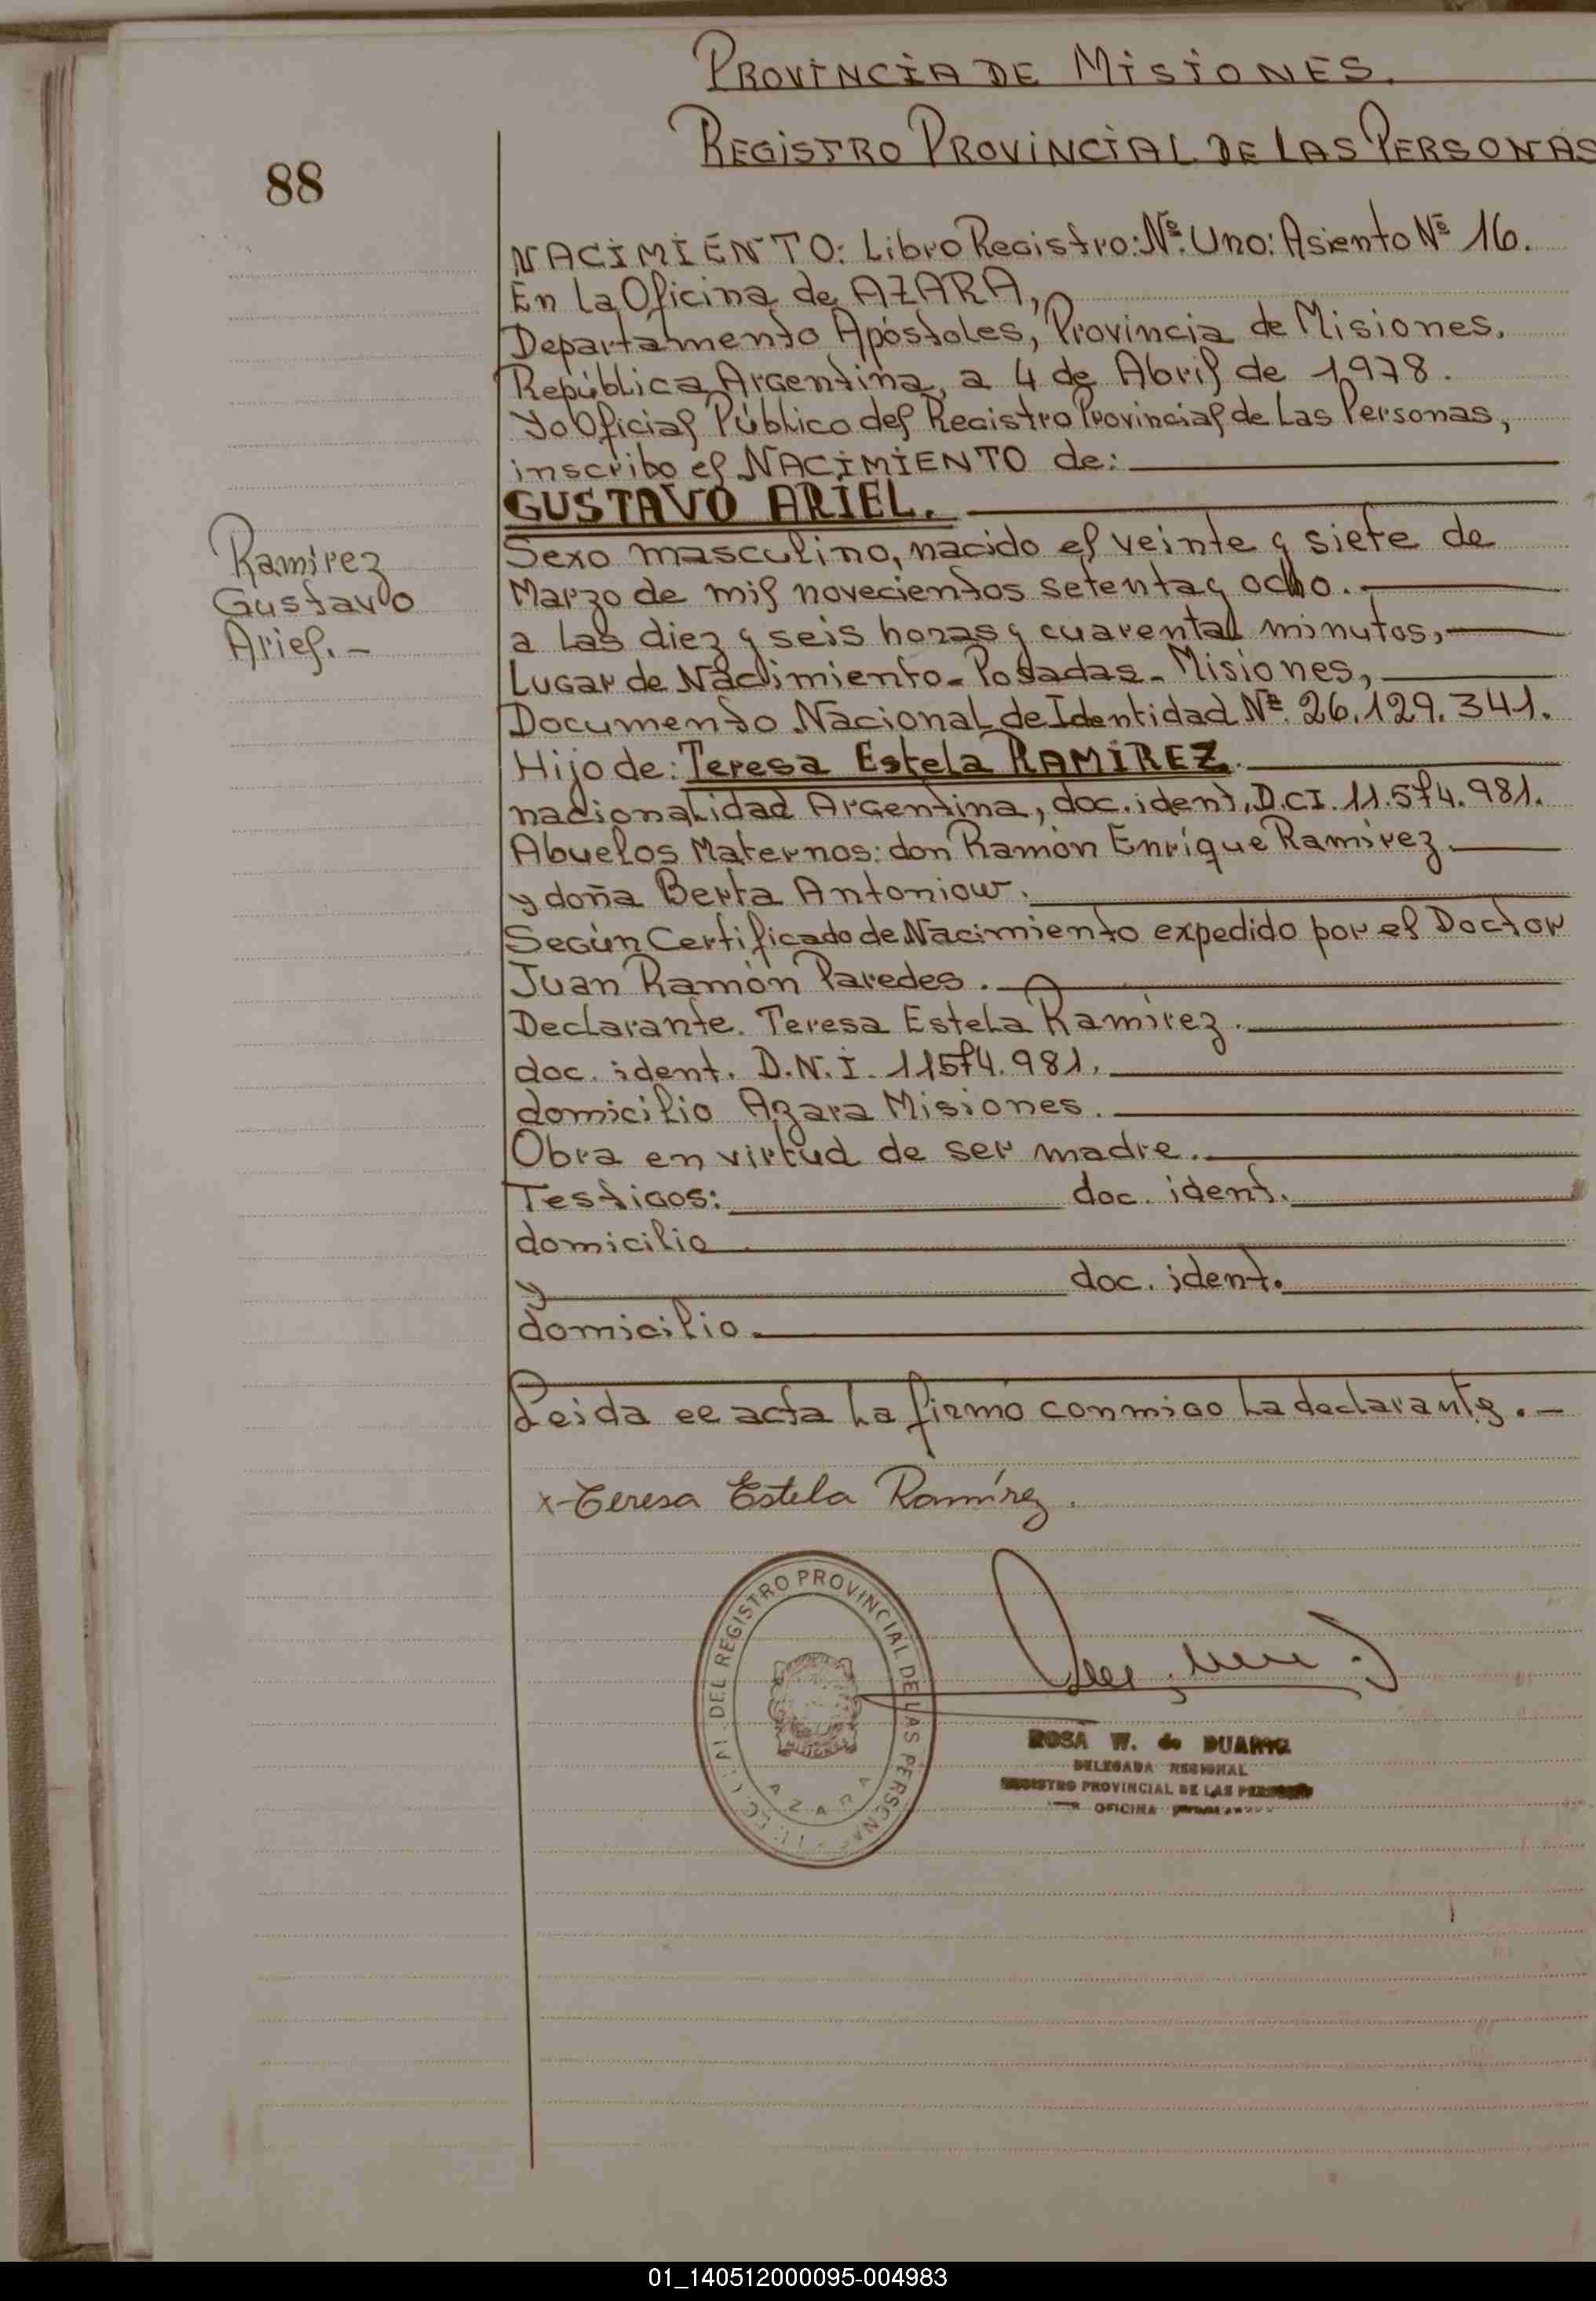 PROVINCIA DE MISIONES.
REGISTRO PROVINCIAL DE LAS PERSONAS
88
NACIMIENTO: Libro Registro: Nº. Uno: Asiento Nº 16.
En La Oficina de AZARA,
Departamento Apóstoles, Provincia de Misiones.
República Argentina, a 4 de Abril de 1978.
Yo Oficial Público del Registro Provincial de Las Personas,
inscribo el NACIMIENTO de:
GUSTAVO ARIEL.
Ramirez
Gustavo
Ariel. -
Sexo masculino, nacido el veinte y siete de
Marzo de mil novecientos setenta y ocho.
a las diez y seis horas y cuarenta minutos,
Lugar de Nacimiento - Posadas - Misiones,
Documento Nacional de Identidad Nº. 26.129.341.
Hijo de: Teresa Estela RAMÍREZ.
nacionalidad Argentina, doc. ident, D.C.I. 11.574.981.
Abuelos Maternos: don Ramón Enrique Ramírez
y doña Berta Antoniow.
Según Certificado de Nacimiento expedido por el Doctor
Juan Ramón Paredes.
Declarante. Teresa Estela Ramírez.
doc. ident. D.N.I. 11574.981.
domicilio Azara Misiones.
Obra en virtud de ser madre.
Testigos: doc. ident.
domicilio
y doc. ident.
domicilio.
Leida ee acta la firmó conmigo la declarante. -
x Teresa Estela Ramírez.
DEL REGISTRO PROVINCIAL DE LAS PERSONAS
AZARA
ROSA W. de DUARTE
DELEGADA REGIONAL
REGISTRO PROVINCIAL DE LAS PERSONAS
OFICINA
01_140512000095-004983